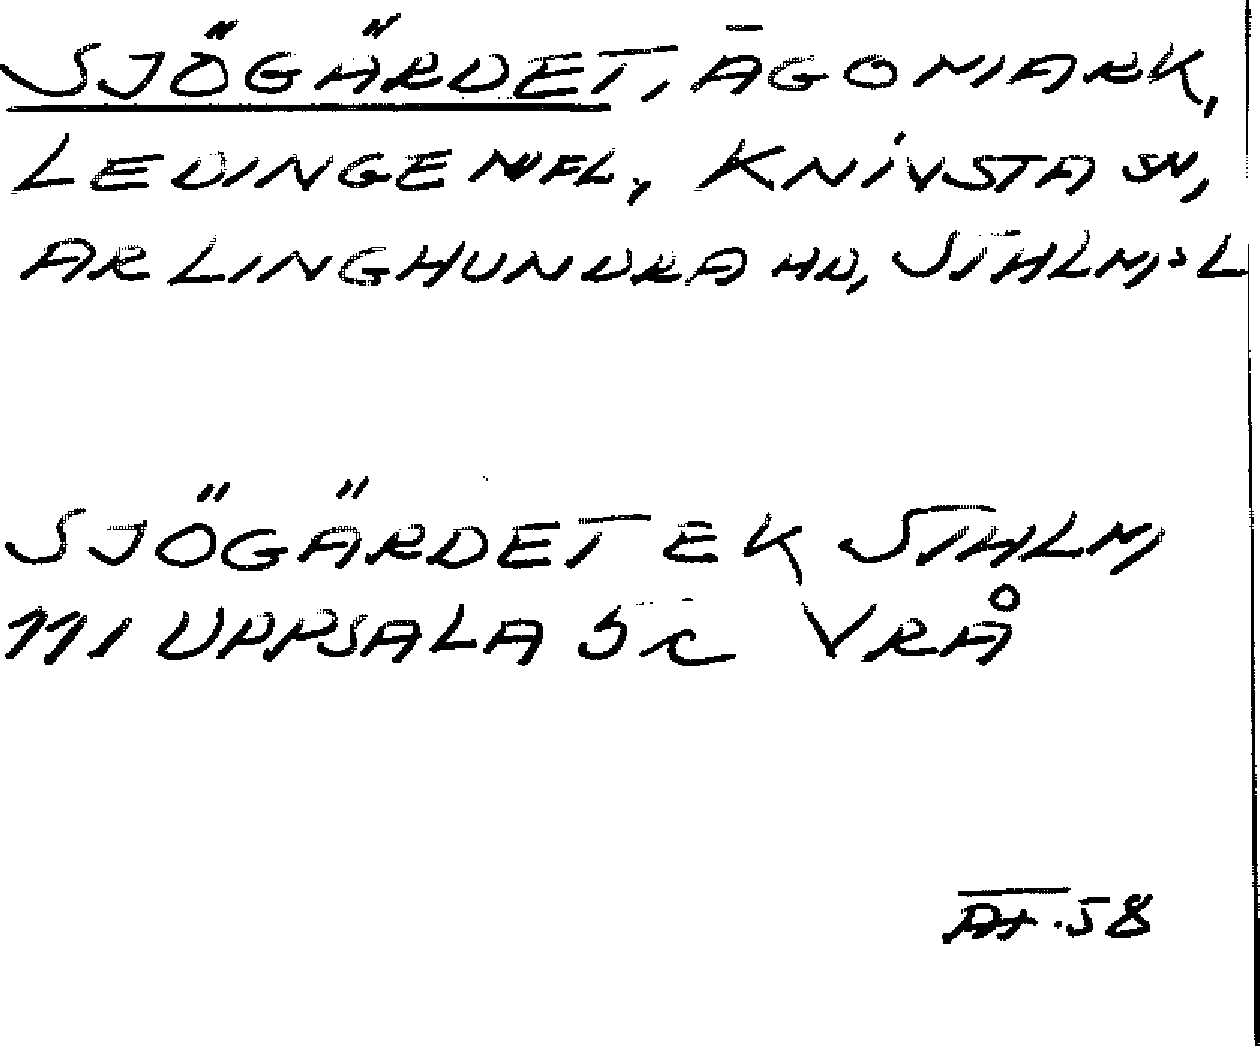 SJÖGÄRDET, ÄGOMARK,
LEDINGE M FL, KNIVSTA SN,
ARLINGHUNDRA HD, STHLMS L
SJÖGÄRDET EK STHLM
111 UPPSALA 5 c VRÅ
58